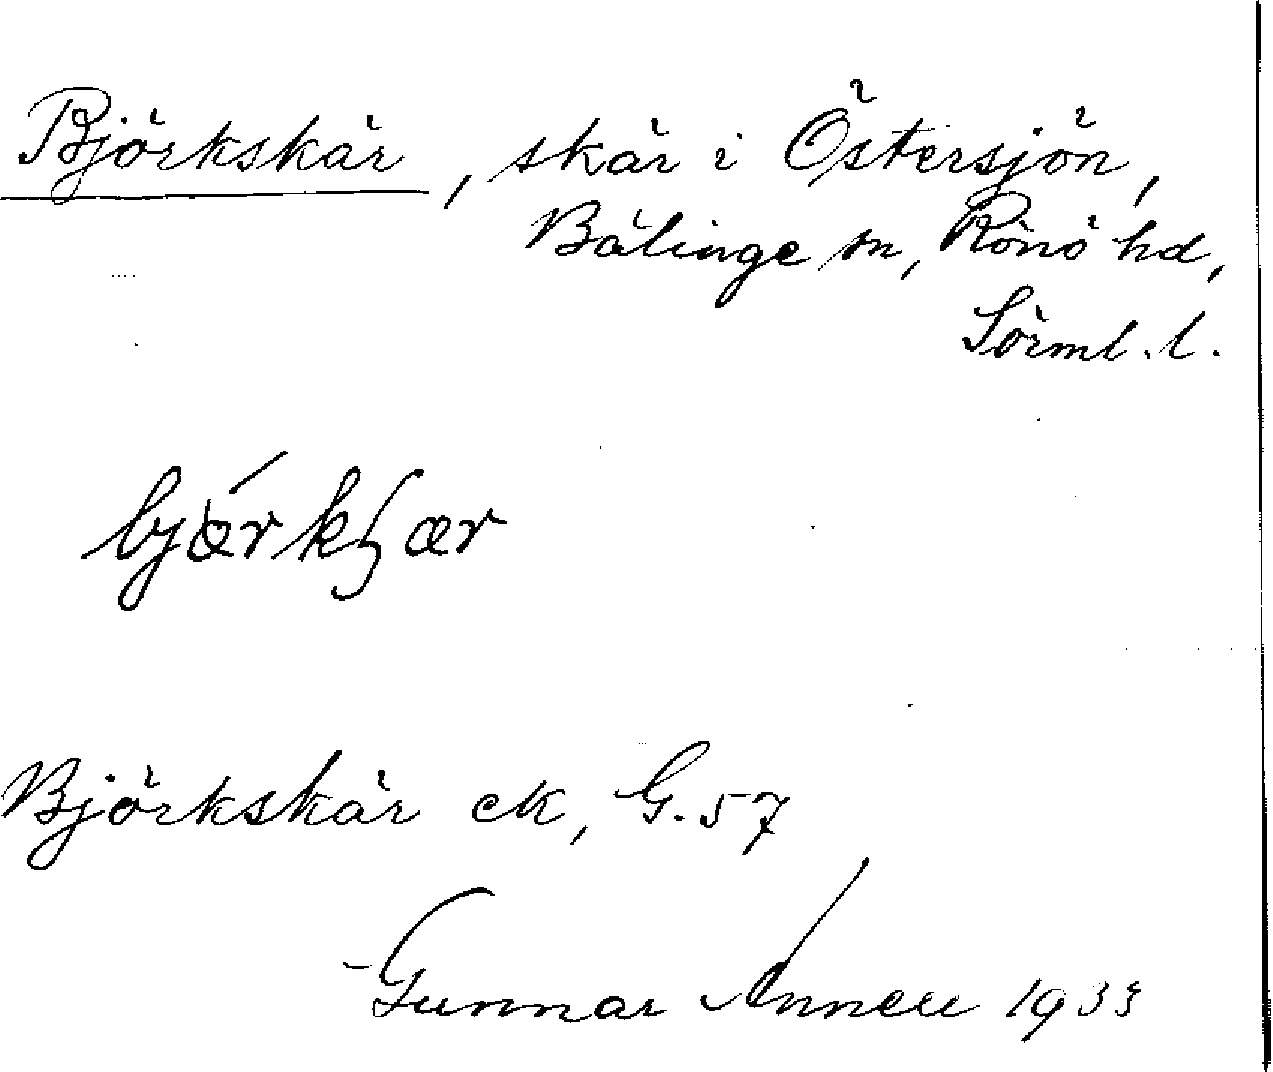 Björkskär, skär i Östersjön,
Bälinge sn, Rönö hd,
Sörml. l.
Björkskär ek, G. 57
Gunnar Annell 1933